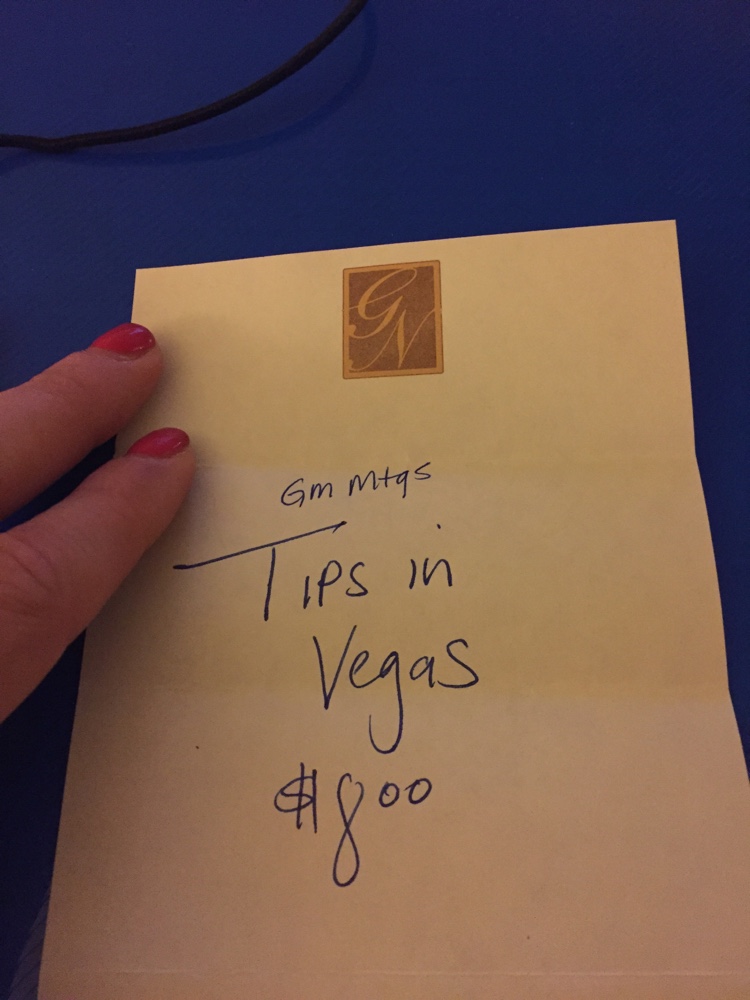 GN
Gm Mtgs
Tips in
Vegas
$800